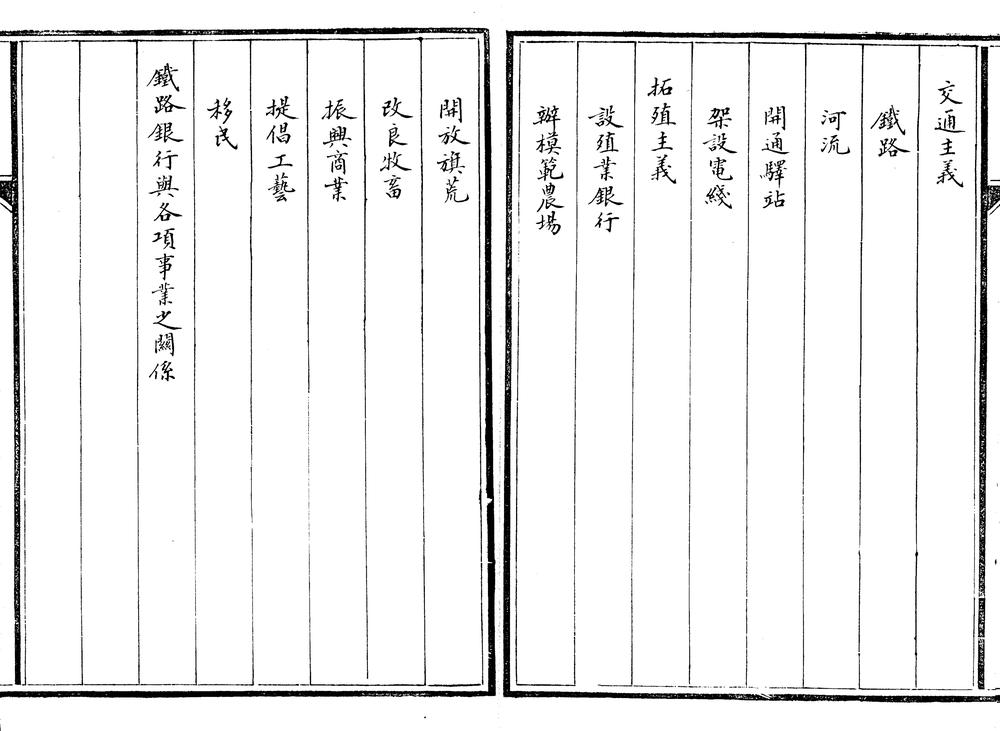 交通主義
鐵路
河流
開通驛站
架設電綫
拓殖主義
設殖業銀行
辦模範農場
開放旗荒
改良牧畜
振興商業
提倡工藝
移民
鐵路銀行與各項事業之關係